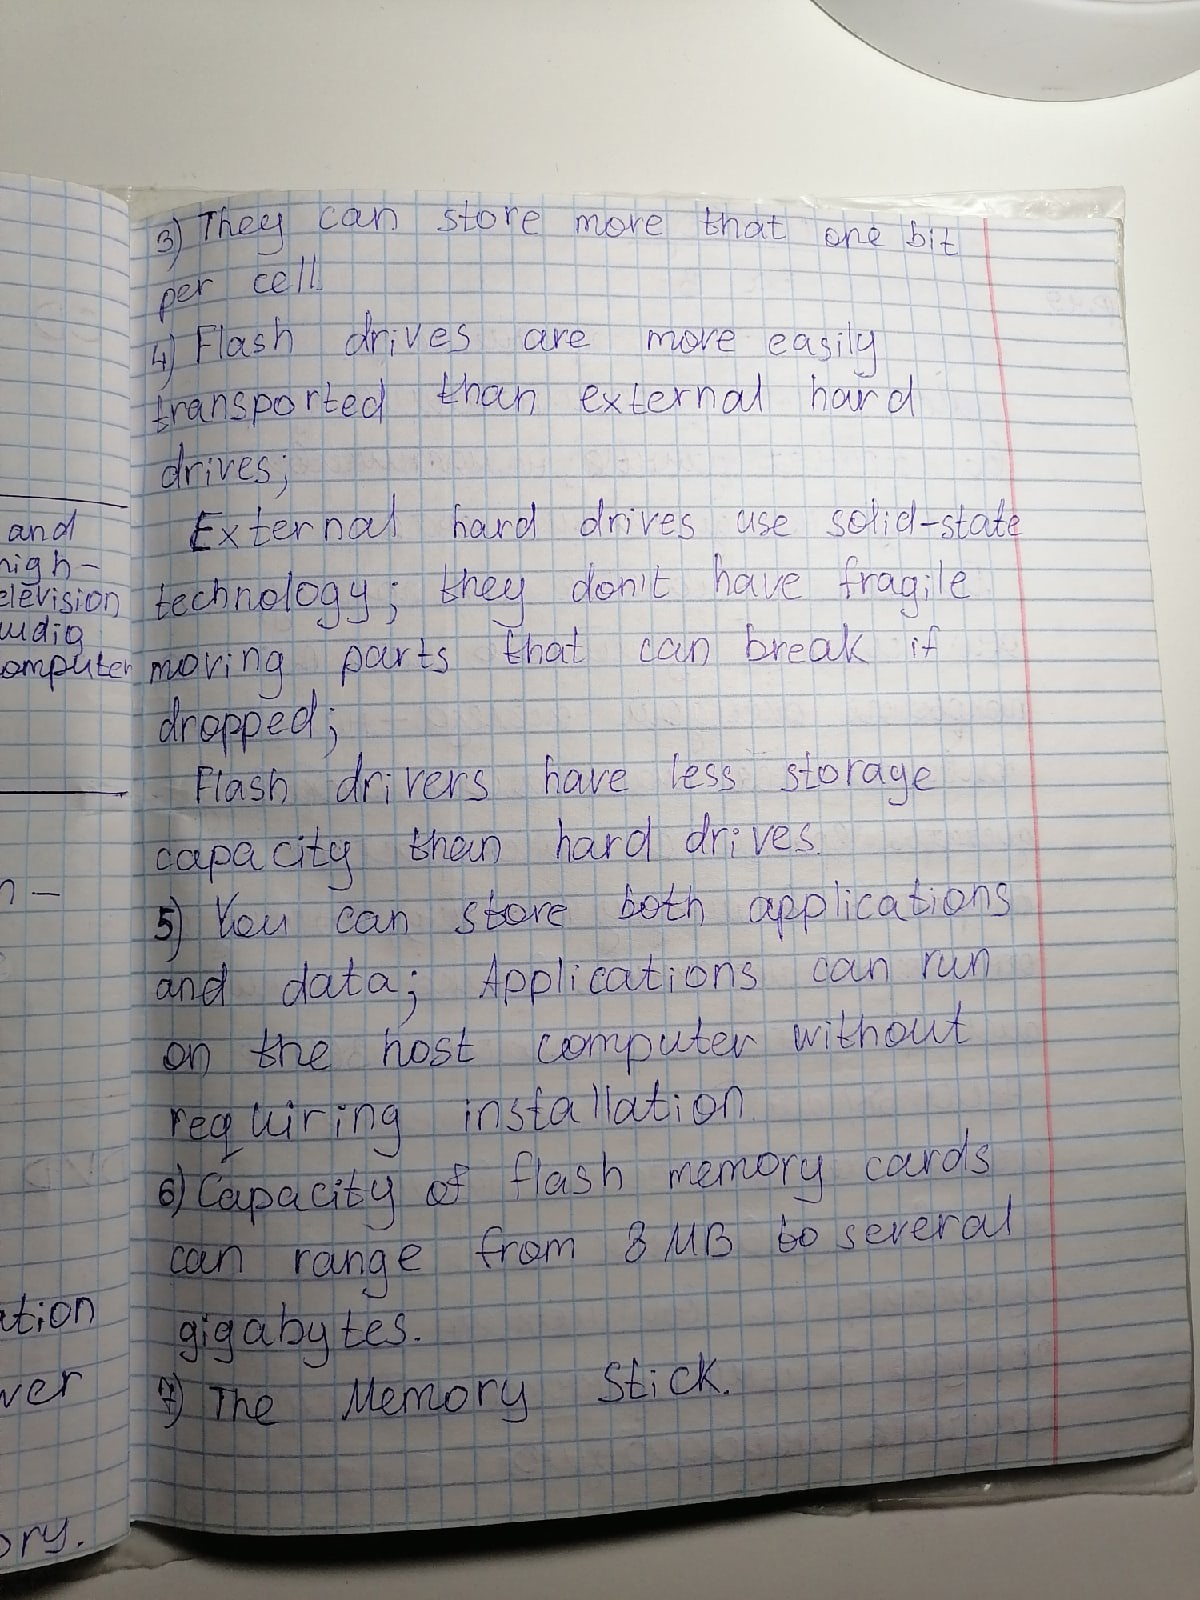 3) They can store more that one bit
per cell.
4) Flash drives are more easily
transported than external hard
drives;
External hard drives use solid-state
technology; they don't have fragile
moving parts that can break if
dropped;
Flash drivers have less storage
capacity than hard drives.
5) You can store both applications
and data; Applications can run
on the host computer without
requiring installation.
6) Capacity of flash memory cards
can range from 8 MB to several
gigabytes.
7) The Memory Stick.
and
high-
elevision
omputer
ation
ver
ory.